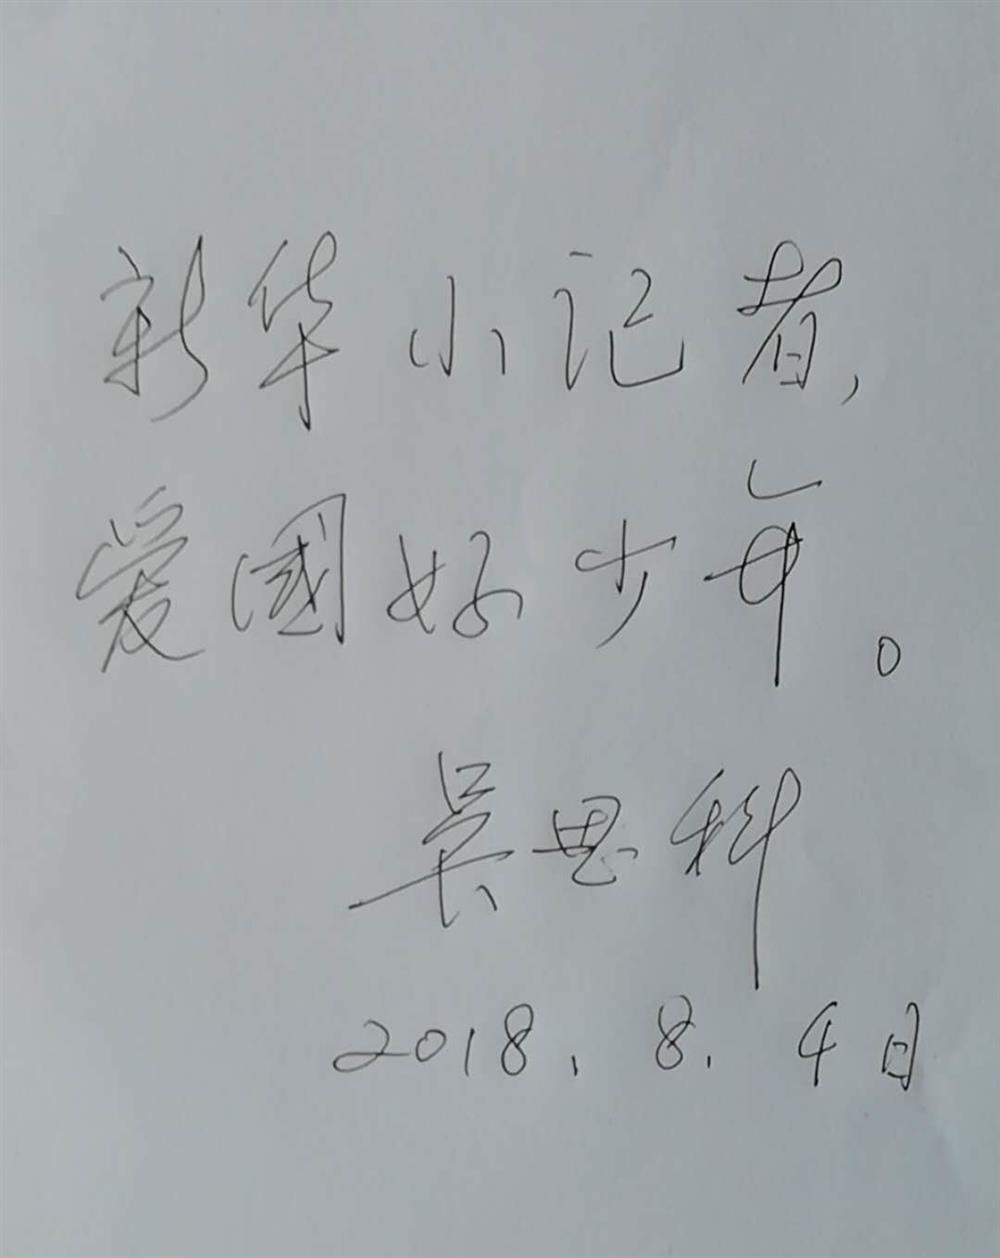 新华小记者,
爱國好少年。
吴思科
2018.8.4日